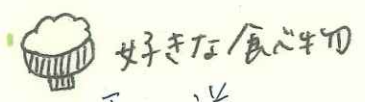 好きな食べ物